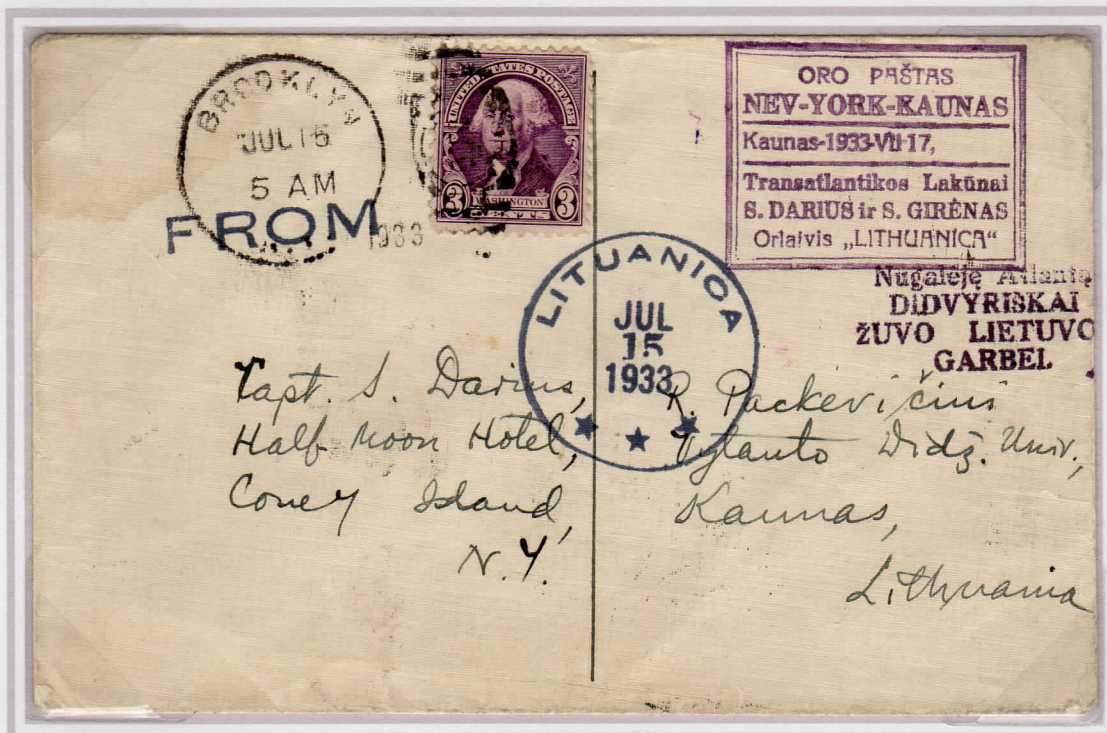 BROOKLYN
JUL 15
5 AM
1933
FROM
UNITED STATES POSTAGE
3 WASHINGTON 3
CENTS
ORO PAŠTAS
NEV-YORK-KAUNAS
Kaunas-1933-VII-17,
Transatlantikos Lakūnai
S. DARIUS ir S. GIRĖNAS
Orlaivis „LITHUANICA“
Nugalėję Atlantą
DIDVYRISKAI
ŽUVO LIETUVO
GARBEL
LITUANICA
JUL
15
1933
Capt. S. Darius,
Half Moon Hotel,
Coney Island,
N.Y.
R. Packevičius
Vytauto Didž. Univ.,
Kaunas,
Lithuania